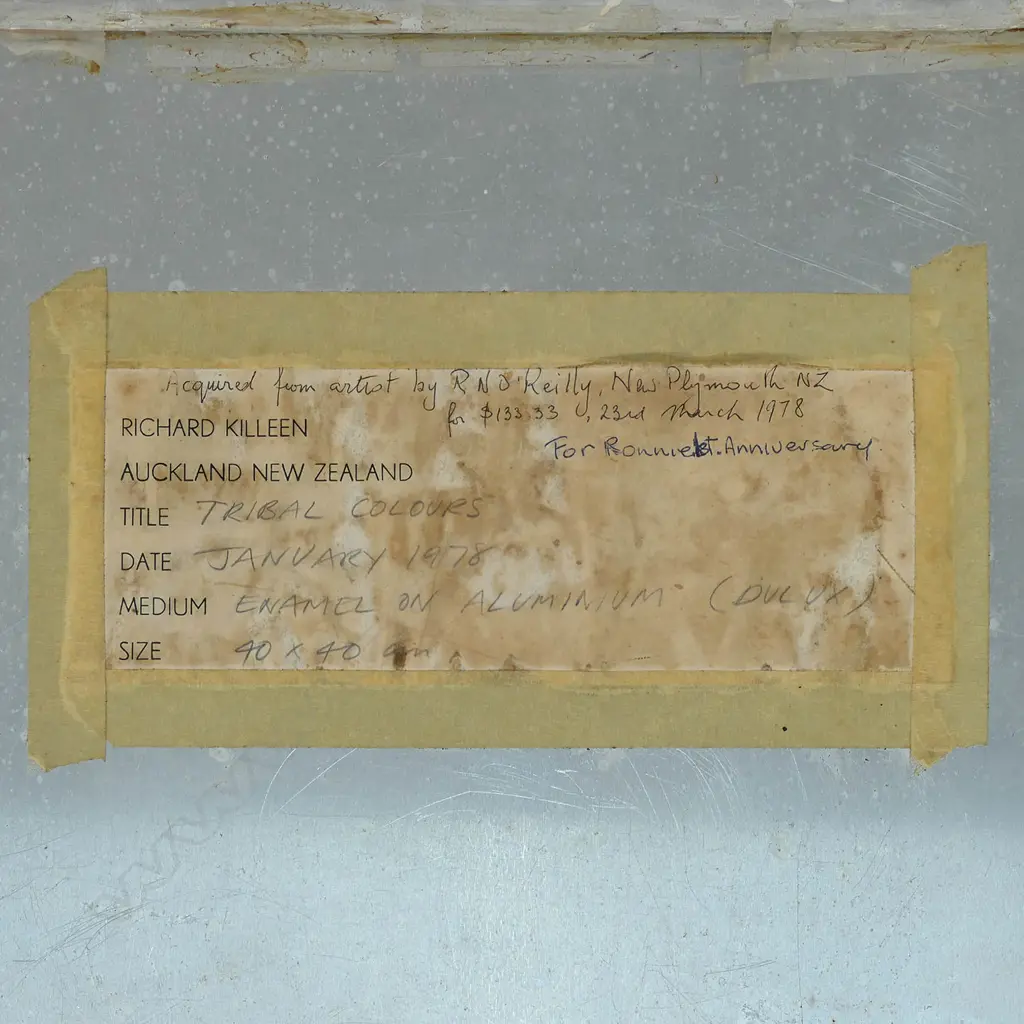 Acquired from artist by R N O'Reilly, New Plymouth NZ
for $133.33, 23rd March 1978
RICHARD KILLEEN
For Bonnie Anniversary.
AUCKLAND NEW ZEALAND
TITLE TRIBAL COLOURS
DATE JANUARY 1978
MEDIUM ENAMEL ON ALUMINIUM (DULUX)
SIZE 40 X 40 cm